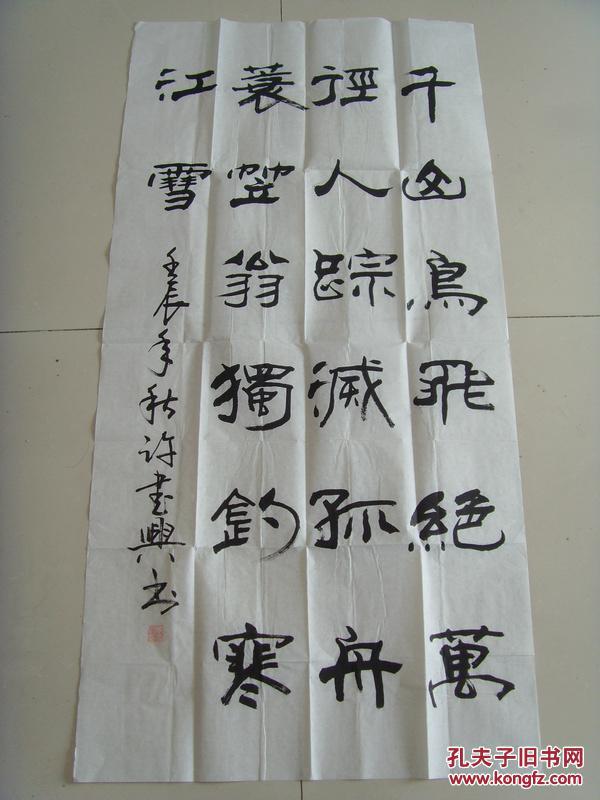 千山鳥飛絕萬
徑人踪滅孤舟
蓑笠翁獨釣寒
江雪
壬辰年秋許書興书
孔夫子旧书网
www.kongfz.com